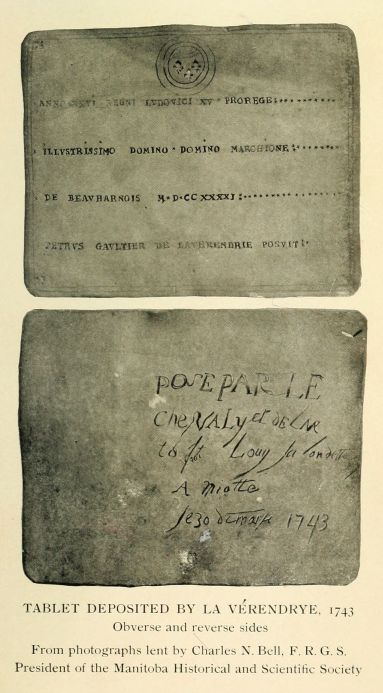 ANNO XXVI REGNI LVDOVICI XV PROREGE
ILLVSTRISSIMO DOMINO DOMINO MARCHIONE
DE BEAVHARNOIS M D CC XXXXI
PETRVS GAVLTIER DE LAVERENDRIE POSVIT
POSE PAR LE
Chevalyet De Lar
to st Louy la Londette
A Miotte
le 30 de mars 1743
TABLET DEPOSITED BY LA VÉRENDRYE, 1743
Obverse and reverse sides
From photographs lent by Charles N. Bell, F. R. G. S.
President of the Manitoba Historical and Scientific Society